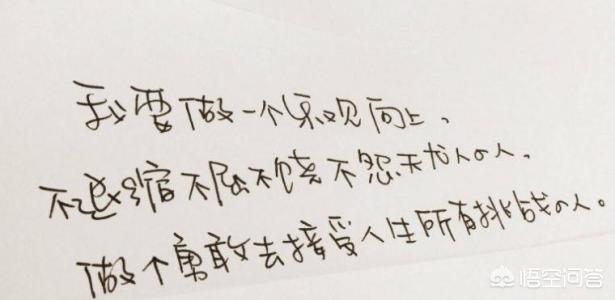 我要做一个乐观向上,
不退缩不屈不饶不怨天尤人的人,
做个勇敢去接受人生所有挑战的人。
悟空问答